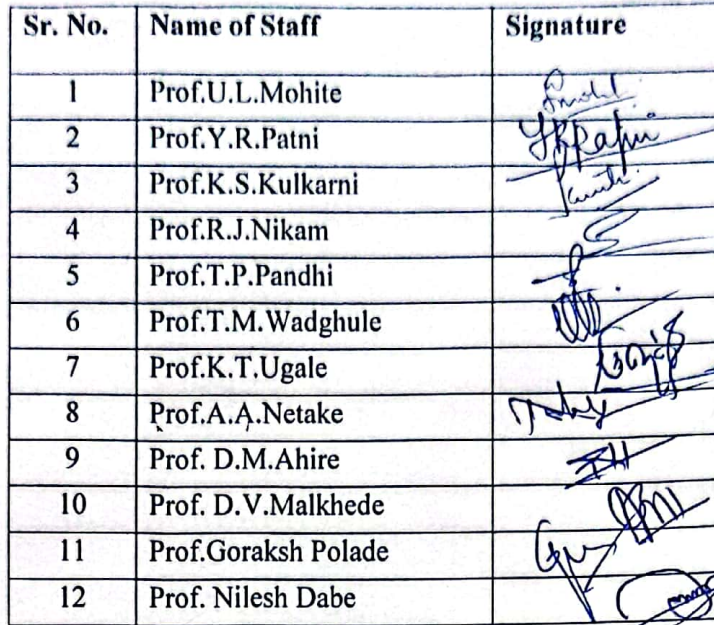 Sr. No. Name of Staff Signature
1 Prof.U.L.Mohite
2 Prof.Y.R.Patni
3 Prof.K.S.Kulkarni
4 Prof.R.J.Nikam
5 Prof.T.P.Pandhi
6 Prof.T.M.Wadghule
7 Prof.K.T.Ugale
8 Prof.A.A.Netake
9 Prof. D.M.Ahire
10 Prof. D.V.Malkhede
11 Prof.Goraksh Polade
12 Prof. Nilesh Dabe